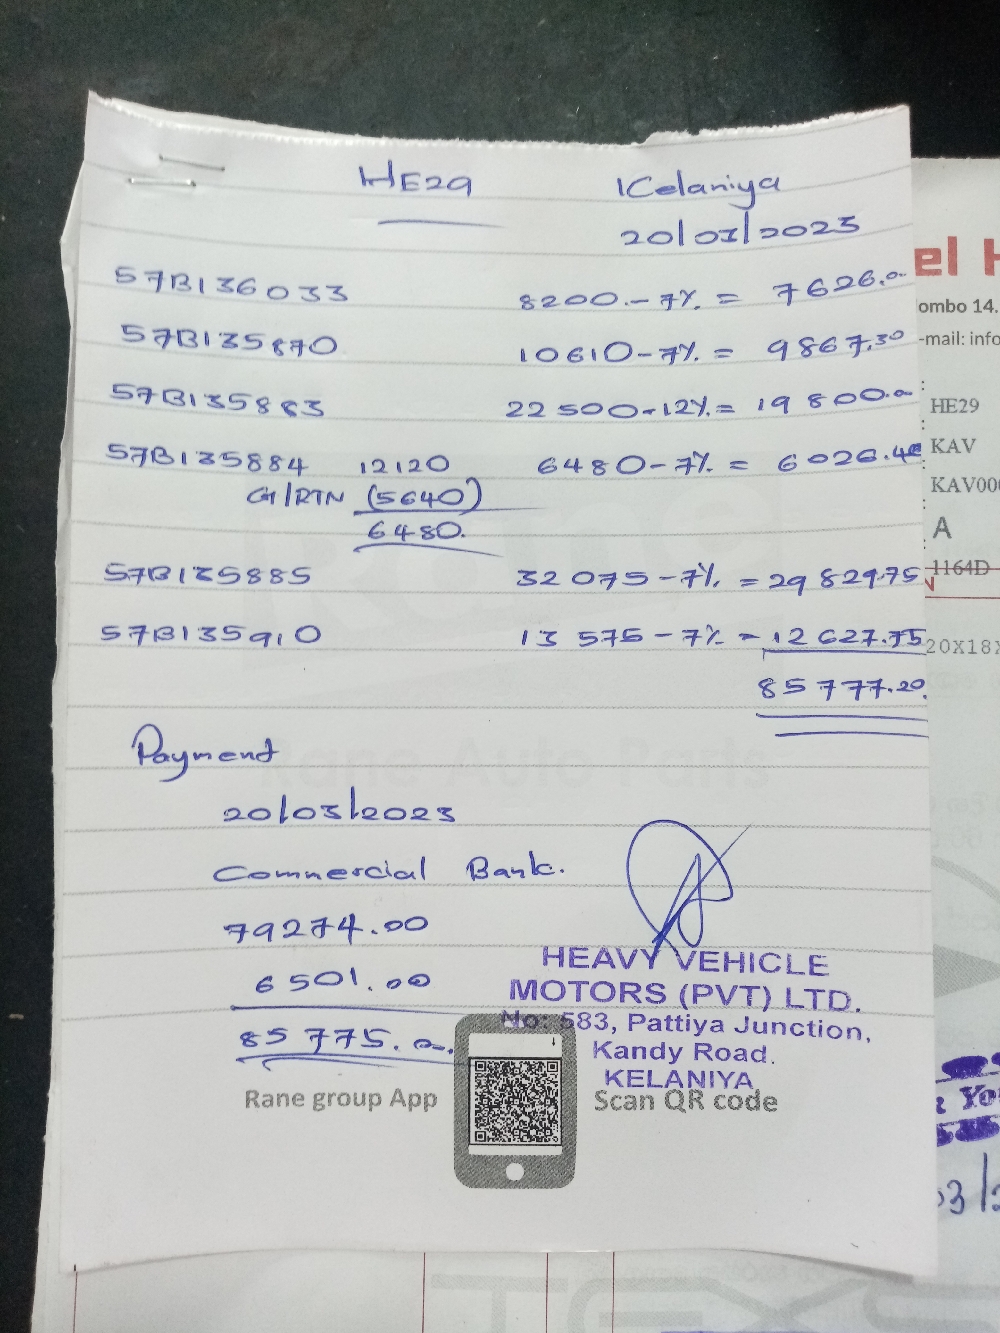 HE29 Kelaniya
20/03/2023
57B136033 8200.-7% = 7626.00
57B135870 10610-7% = 9867.30
57B135883 22500-12% = 19800.00
57B135884 12120 6480-7% = 6026.40
G/RTN (5640)
6480.
57B135885 32075-7% = 29829.75
57B135910 13575-7% = 12627.75
85777.20
Payment
20/03/2023
Commercial Bank.
79274.00
6501.00
85775.00
HEAVY VEHICLE
MOTORS (PVT) LTD.
No: 583, Pattiya Junction,
Kandy Road.
KELANIYA
Rane group App
Scan QR code
Rane
Rane Auto Parts
el H
ombo 14.
-mail: info
: HE29
: KAV
: KAV000
: A
1164D
20X18X
03/2